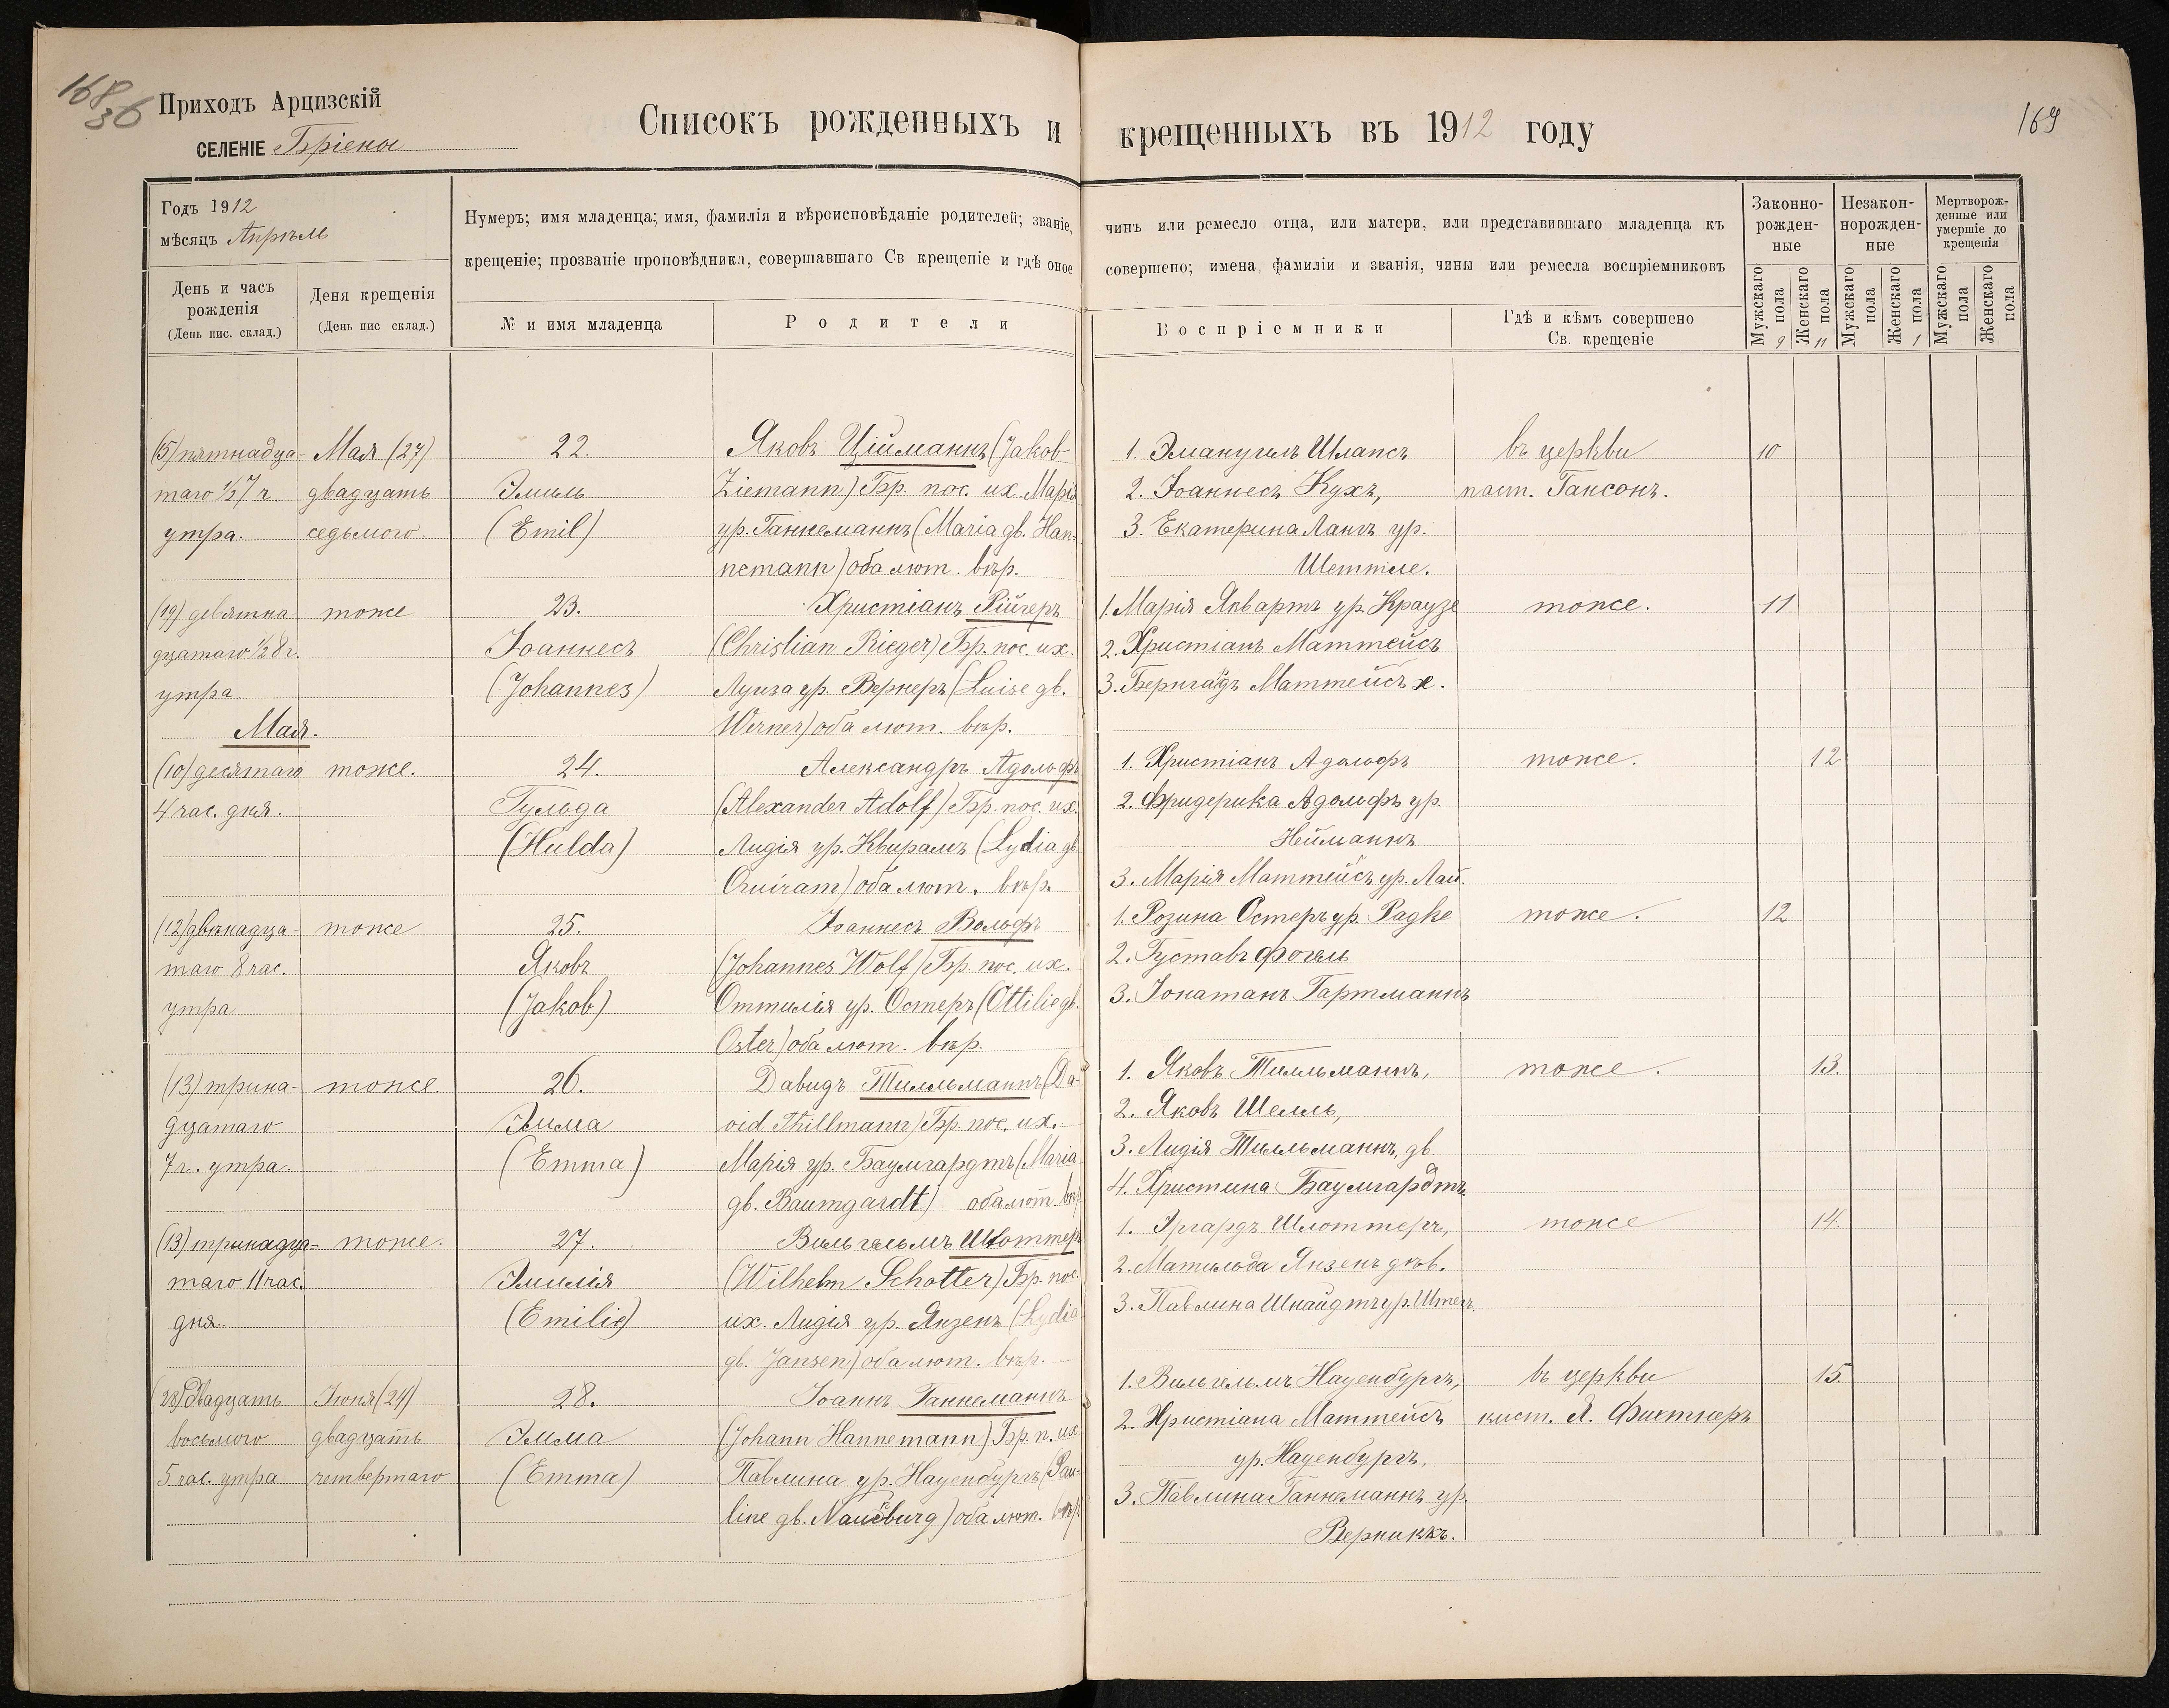 168
36
Приходъ Арцизскій
СЕЛЕНІЕ Бріены
Списокъ рожденныхъ и крещенныхъ въ 1912 году
169
Годъ 1912
мѣсяцъ Апрѣль
День и часъ рожденія
(День пис. склад.)
Деня крещенія
(День пис склад.)
Нумеръ; имя младенца; имя, фамилія и вѣроисповѣданіе родителей; званіе, чинъ или ремесло отца, или матери, или представившаго младенца къ
крещеніе; прозваніе проповѣдника, совершавшаго Св крещеніе и гдѣ оное совершено; имена фамиліи и званія, чины или ремесла воспріемниковъ
№ и имя младенца
Родители
Воспріемники
Гдѣ и кѣмъ совершено
Св. крещеніе
Законно-
рожден-
ные
Незакон-
норожден-
ные
Мертворож-
денные или
умершіе до
крещенія
Мужскаго пола 9
Женскаго пола 11
Мужскаго пола
Женскаго пола 1
Мужскаго пола
Женскаго пола
(15) пятнадца- Мая (27) 22. Яковъ Ційманнъ (Jakob 1. Эмануилъ Шлапсъ въ церкви 10
таго ½7 ч. двадцать Эмиль Ziemann) Бр. пос. их. Марія 2. Іоаннесъ Кухъ, паст. Гансонъ.
утра. седьмого. (Emil) ур. Ганнеманнъ (Maria gb. Han- 3. Екатерина Лангъ ур.
nemann) оба лют. вѣр. Шеттле.
(19) девятна- тоже 23. Христіанъ Рійгеръ 1. Марія Аквартъ ур. Краузе тоже. 11
дцатаго ½8 ч. Іоаннесъ (Christian Rieger) Бр. пос. их. 2. Христіанъ Маттейсъ
утра (Johannes) Луиза ур. Вернеръ (Luise gb. 3. Бернгардъ Маттейсъ х.
Мая. Werner) оба лют. вѣр.
(10) десятаго тоже. 24. Александръ Адольфъ 1. Христіанъ Адольфъ тоже. 12
4 час. дня. Гульда (Alexander Adolf) Бр. пос. их. 2. Фридерика Адольфъ ур.
(Hulda) Лидія ур. Квирамъ (Lydia gb. Нейманнъ
Quiram) оба лют. вѣр. 3. Марія Маттейсъ ур. Лай.
(12) двѣнадца- тоже 25. Іоаннесъ Вольфъ 1. Розина Остеръ ур. Радке тоже. 12
таго 8 час. Яковъ (Johannes Wolf) Бр. пос. их. 2. Густавъ Фогель
утра (Jakob) Оттилія ур. Остеръ (Ottilie gb. 3. Іонатанъ Гартманнъ
Oster) оба лют. вѣр.
(13) трина- тоже. 26. Давидъ Тилльманнъ (Da- 1. Яковъ Тилльманнъ, тоже. 13.
дцатаго Эмма vid Thillmann) Бр. пос. их. 2. Яковъ Шелль,
7 ч. утра. (Emma) Марія ур. Баумгардтъ (Maria 3. Лидія Тилльманнъ, дв.
gb. Baumgardt) оба лют. вѣр 4. Христина Баумгардтъ.
(13) тринадца- тоже. 27. Вильгельмъ Шоттеръ 1. Эргардъ Шлоттеръ, тоже 14.
таго 11 час. Эмилія (Wilhelm Schotter) Бр. пос. 2. Матильда Янзенъ дѣв.
дня. (Emilie) их. Лидія ур. Янзенъ (Lydia 3. Павлина Шнайдтъ ур. Штегъ.
gb. Jansen) оба лют. вѣр.
(28) двадцать Іюня (24) 28. Іоаннъ Ганнеманнъ 1. Вильгельмъ Науенбургъ, въ церкви 15.
восьмого двадцать Эмма (Johann Hannemann) Бр. п. их. 2. Христіана Маттейсъ кист. Я. Фихтнеръ
5 час. утра четвертаго (Emma) Павлина ур. Науенбургъ (Pau- ур. Науенбургъ.
line gb. Nauenburg) оба лют. вѣр 3. Павлина Ганнеманнъ ур.
Верникъ.